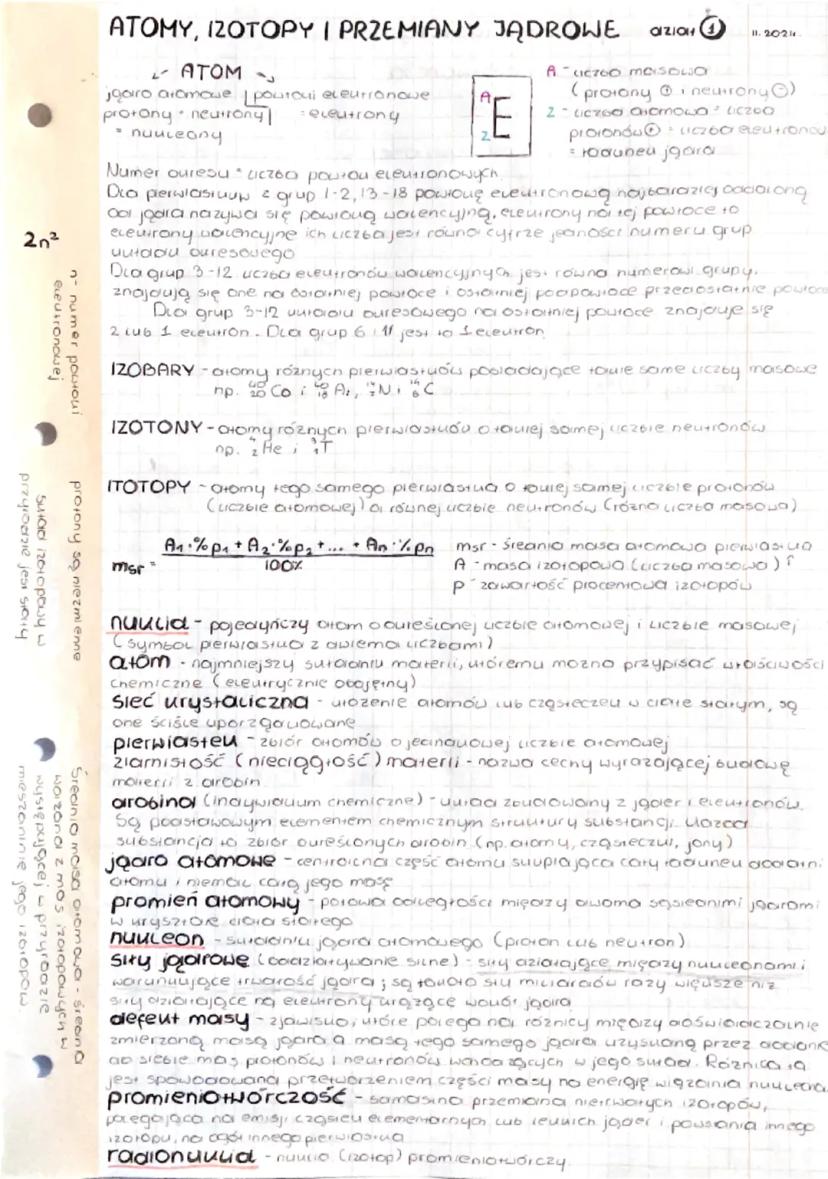 ATOMY, IZOTOPY I PRZEMIANY JĄDROWE dział 1 11.2024
ATOM
jądro atomowe | powłoki elektronowe
protony + neutrony = elektrony
= nukleony
A
Z
E
A - liczba masowa
(protony ⊕ i neutrony ⊖)
Z - liczba atomowa = liczba
protonów ⊕ = liczba elektronów
= ładunek jądra
Numer okresu = liczba powłok elektronowych
Dla pierwiastków z grup 1-2, 13-18 powłokę elektronową najbardziej oddaloną
od jądra nazywa się powłoką walencyjną, elektrony na tej powłoce to
elektrony walencyjne ich liczba jest równa cyfrze jedności numeru grup
układu okresowego
Dla grup 3-12 liczba elektronów walencyjnych jest równa numerowi grupy.
znajdują się one na ostatniej powłoce i ostatniej podpowłoce przedostatniej powłoce
Dla grup 3-12 układu okresowego na ostatniej powłoce znajduje się
2 lub 1 elektron. Dla grup 6 i 11 jest to 1 elektron
IZOBARY - atomy różnych pierwiastków posiadające takie same liczby masowe
np. ⁴⁰₂₀Ca i ⁴⁰₁₈Ar, ¹⁴₇N i ¹⁴₆C
IZOTONY - atomy różnych pierwiastków o takiej samej liczbie neutronów
np. ⁴₂He i ³₁T
ITOTOPY - atomy tego samego pierwiastka o takiej samej liczbie protonów
(liczbie atomowej) a różnej liczbie neutronów (różna liczba masowa)
msr = A₁·%p₁ + A₂·%p₂ + ... + An·%pn
100%
msr - średnia masa atomowa pierwiastka
A - masa izotopowa (liczba masowa)
p - zawartość procentowa izotopów
nuklid - pojedyńczy atom o określonej liczbie atomowej i liczbie masowej
(symbol pierwiastka z dwiema liczbami)
atom - najmniejszy składnik materii, któremu można przypisać właściwości
chemiczne (elektrycznie obojętny)
sieć krystaliczna - ułożenie atomów lub cząsteczek w ciele stałym, są
one ściśle uporządkowane
pierwiastek - zbiór atomów o jednakowej liczbie atomowej
ziarnistość (nieciągłość) materii - nazwa cechy wyrażającej budowę
materii z drobin
drobina (indywiduum chemiczne) - układ zbudowany z jąder i elektronów.
Są podstawowym elementem chemicznym struktury substancji. Każda
substancja to zbiór określonych drobin (np. atomy, cząsteczki, jony)
jądro atomowe - centralna część atomu skupiająca cały ładunek dodatni
atomu i niemal całą jego masę
promień atomowy - połowa odległości między dwoma sąsiednimi jądrami
w krysztale ciała stałego
nukleon - składnik jądra atomowego (proton lub neutron)
siły jądrowe (oddziaływanie silne) - siły działające między nukleonami i
warunkujące trwałość jądra; są to siły miliardów razy większe niż
siły działające na elektrony krążące wokół jądra
defekt masy - zjawisko, które polega na różnicy między doświadczalnie
zmierzoną masą jądra a masą tego samego jądra uzyskaną przez dodanie
do siebie mas protonów i neutronów wchodzących w jego skład. Różnica ta
jest spowodowana przetworzeniem części masy na energię wiązania nukleonu
promieniotwórczość - samoistna przemiana nietrwałych izotopów,
polegająca na emisji cząstek elementarnych lub lekkich jąder i powstania innego
izotopu, na ogół innego pierwiastka
radionuklid - nuklid (izotop) promieniotwórczy.
2n²
n - numer powłoki
elektronowej
protony są niezmienne
skład izotopowy w
przyrodzie jest stały
średnia masa atomowa - średnia
ważona z mas izotopowych w
występującej w przyrodzie
mieszaninie jego izotopów.